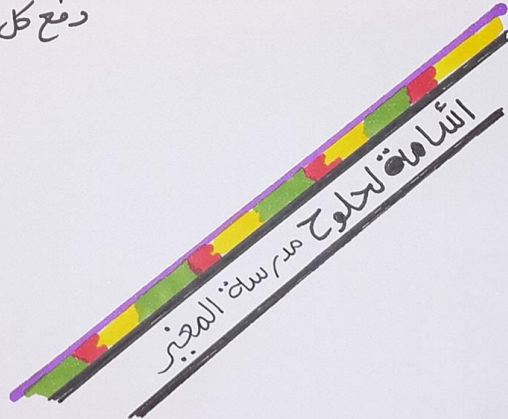 دفع كل
الشامة لحلوح مدرسة المغير